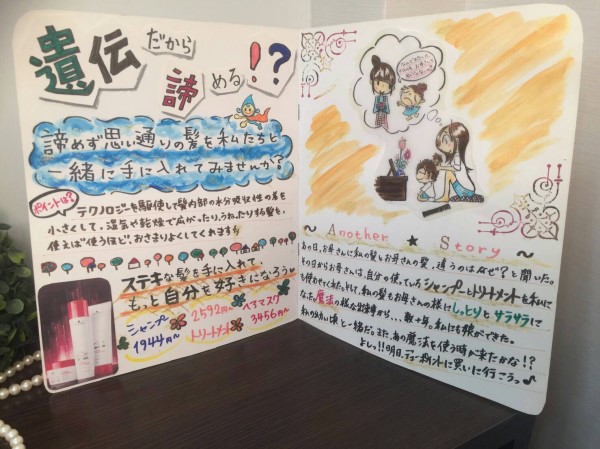 遺伝だから
諦める!?
諦めず思い通りの髪を私たちと
一緒に手に入れてみませんか?
ポイントは?
テクノロジーを駆使して髪内部の水分吸収性の差を
小さくして、湿気や乾燥で広がったりうねったりする髪を、
使えば使うほど、おさまりよくしてくれます
ステキな髪を手に入れて、
もっと自分を好きになろう
シャンプー
1944円~
2592円~
トリートメント
ヘアマスク
3456円~
~Another★Story~
あの日、お母さんに私の髪とお母さんの髪、違うのはなぜ?と聞いた。
その日からお母さんは、自分の使っているシャンプーとトリートメントを私に
も使わせてくれた。そして、私の髪もお母さんの様にしっとりサラサラに
なった魔法の様な出来事から、、、数十年。私にも娘ができた。
私の幼い頃と一緒だ。また、あの魔法を使う時が来たかな!?
よしっ!!明日、デューポイントに買いに行こうっ♪